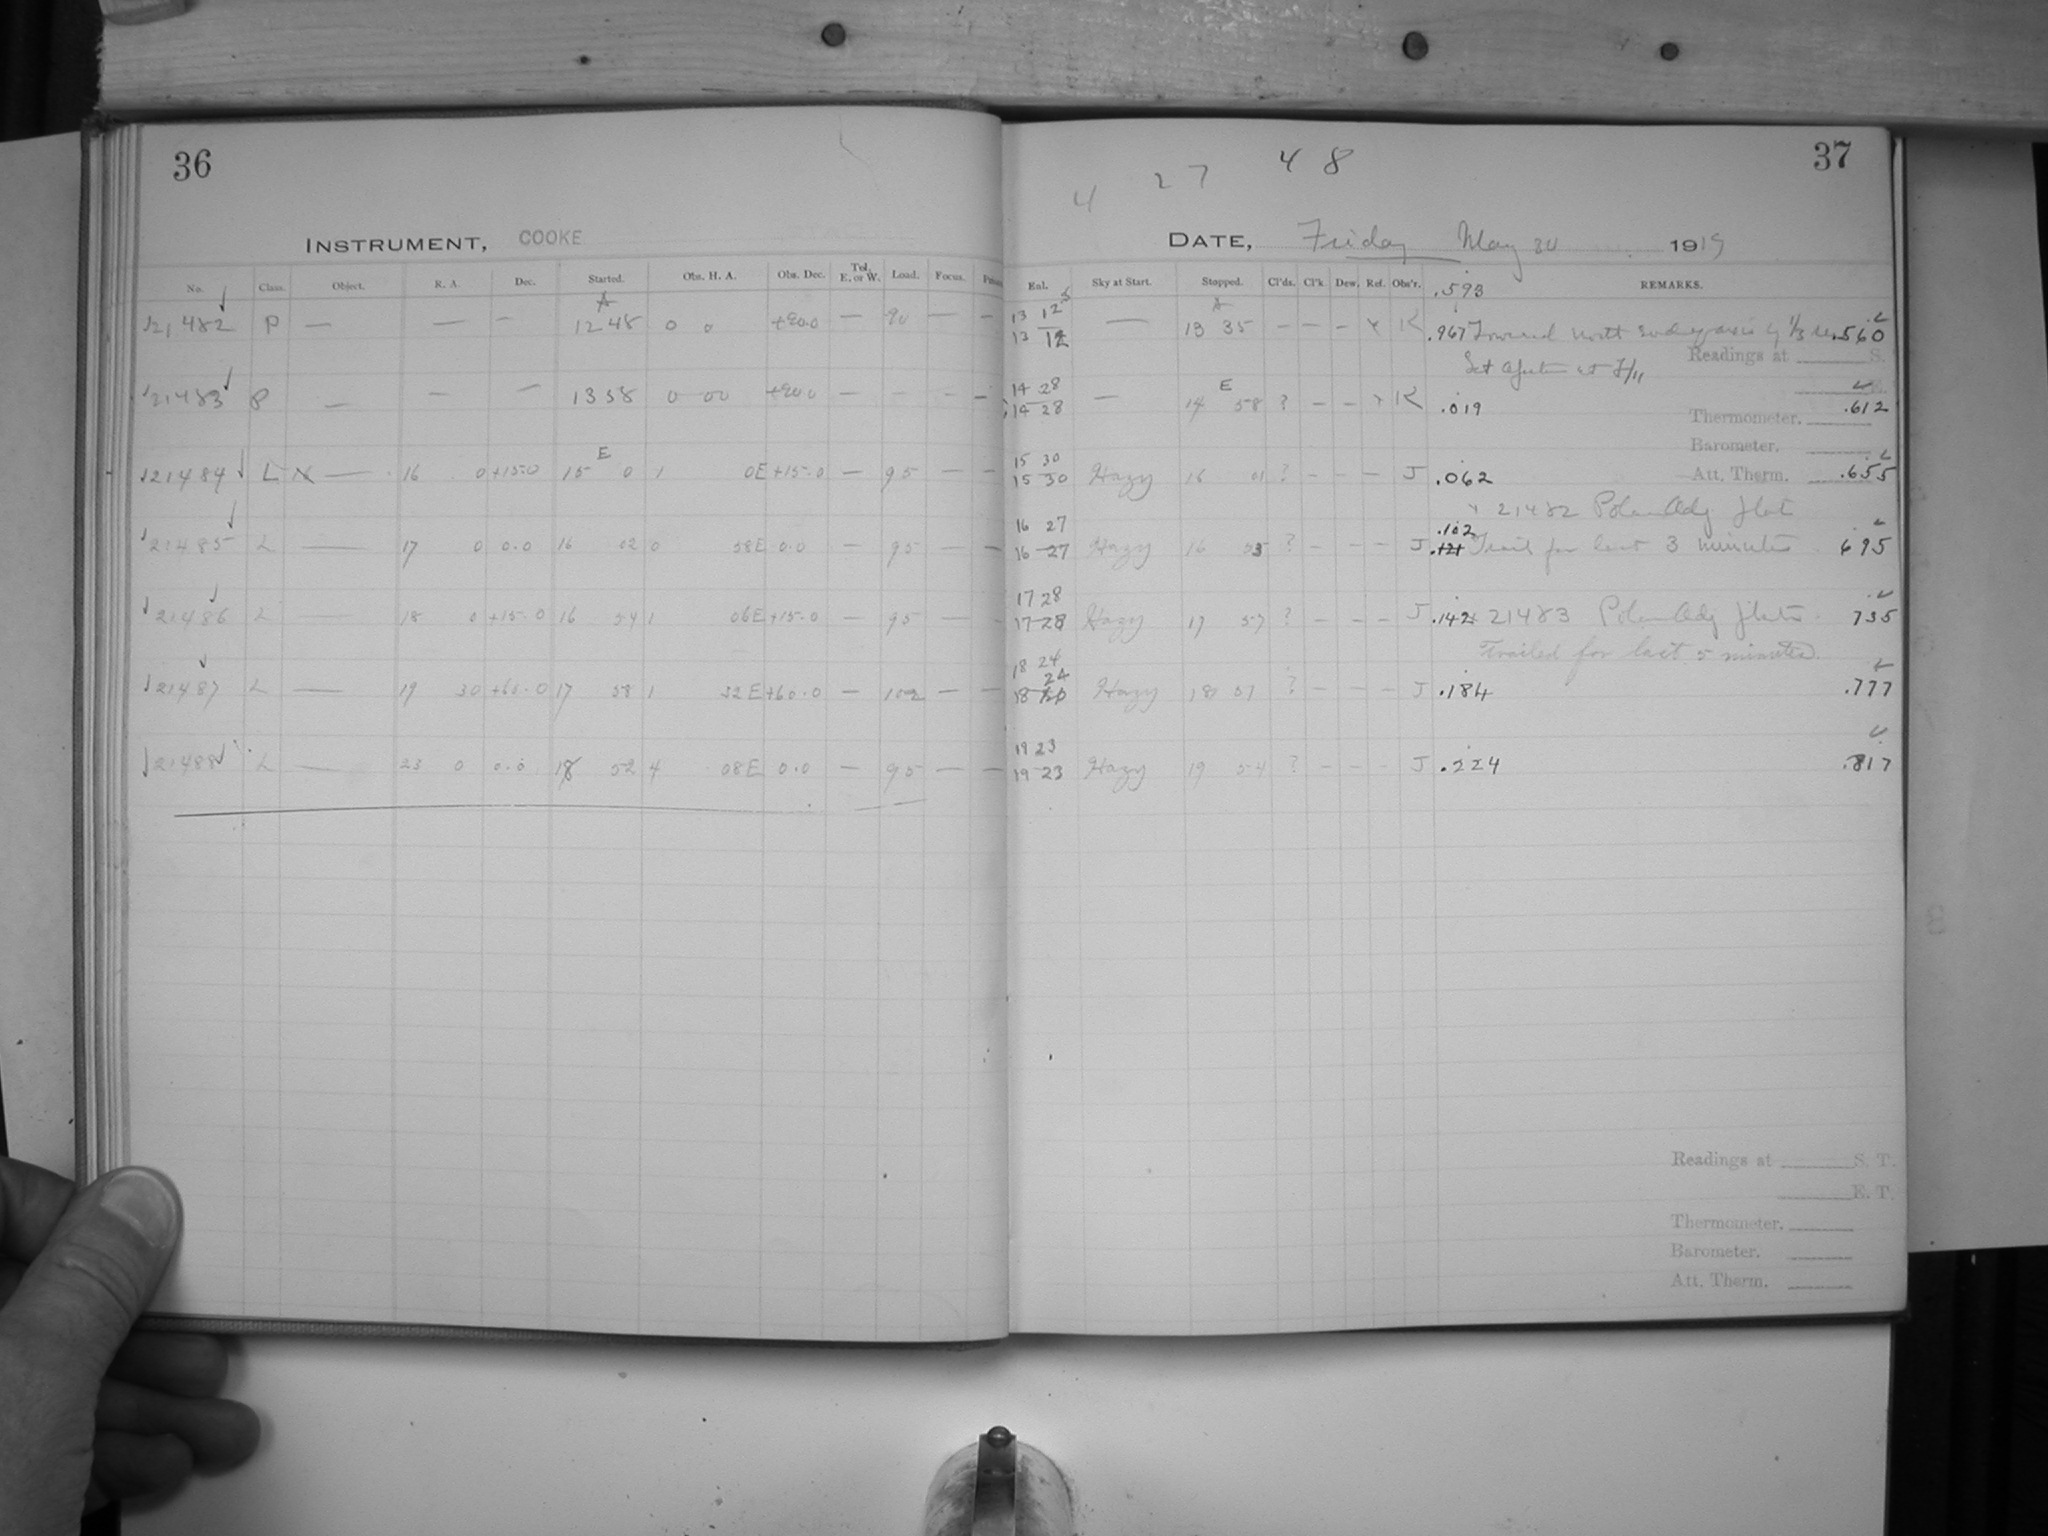 36
INSTRUMENT, COOKE
No. Class. Object. R. A. Dec. Started. Obs. H. A. Obs. Dec. Tel. E. or W. Load. Focus.
21482 P — — — 12 48 0 0 +90.0 — 90 — —
21483 P — — — 13 58 0 00 +90 0 — - - -
E
21484 L — 16 0 +15.0 15 0 1 0E +15.0 — 95 — —
21485 L — 17 0 0.0 16 02 0 58E 0.0 — 95 — —
21486 L — 18 0 +15.0 16 54 1 06E +15.0 — 95 — -
21487 L — 19 30 +60.0 17 58 1 32E +60.0 — 102 — —
21488 L — 23 0 0.0 18 52 4 08E 0.0 — 95 — —
37
4 27 48
DATE, Friday May 30 1919
Eql. Sky at Start. Stopped. Cl'ds. Cl'k. Dew. Ref. Obs'r. .593 REMARKS.
13 12
13 12 — 13 35 — — — K .967 north .560
Readings at S.
Set at F/11
14 28 E
14 28 — 14 58 ? — — K .019 .612
Thermometer.
Barometer.
15 30
15 30 Hazy 16 01 ? - - — J .062 Att. Therm. .655
21482 Polar Adj plate
16 27 .102
16 27 Hazy 16 53 ? - - - J .121 Trail for last 3 minutes 695
17 28
17 28 Hazy 17 57 ? - - - J .142 21483 Polar Adj plate 735
Trailed for last 5 minutes.
18 24
24
18 Hazy 18 57 ? - - - J .184 .777
19 23
19 23 Hazy 19 54 ? - - - J .224 .817
Readings at S. T.
E. T.
Thermometer.
Barometer.
Att. Therm.